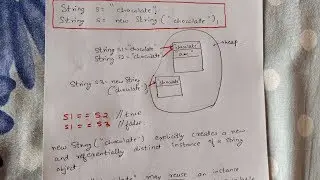 String s= "chocolate";
String s= new String ("chocolate");
String s1="chocolate"
String s2= "chocolate"
chocolate
heap
String s3= new String
("chocolate")
chocolate
S1 == S2 // true
S1 == S3 // false.
new String("chocolate") explicitly creates a new
and referentially distinct instance of a string
object.
"chocolate" may reuse an instance